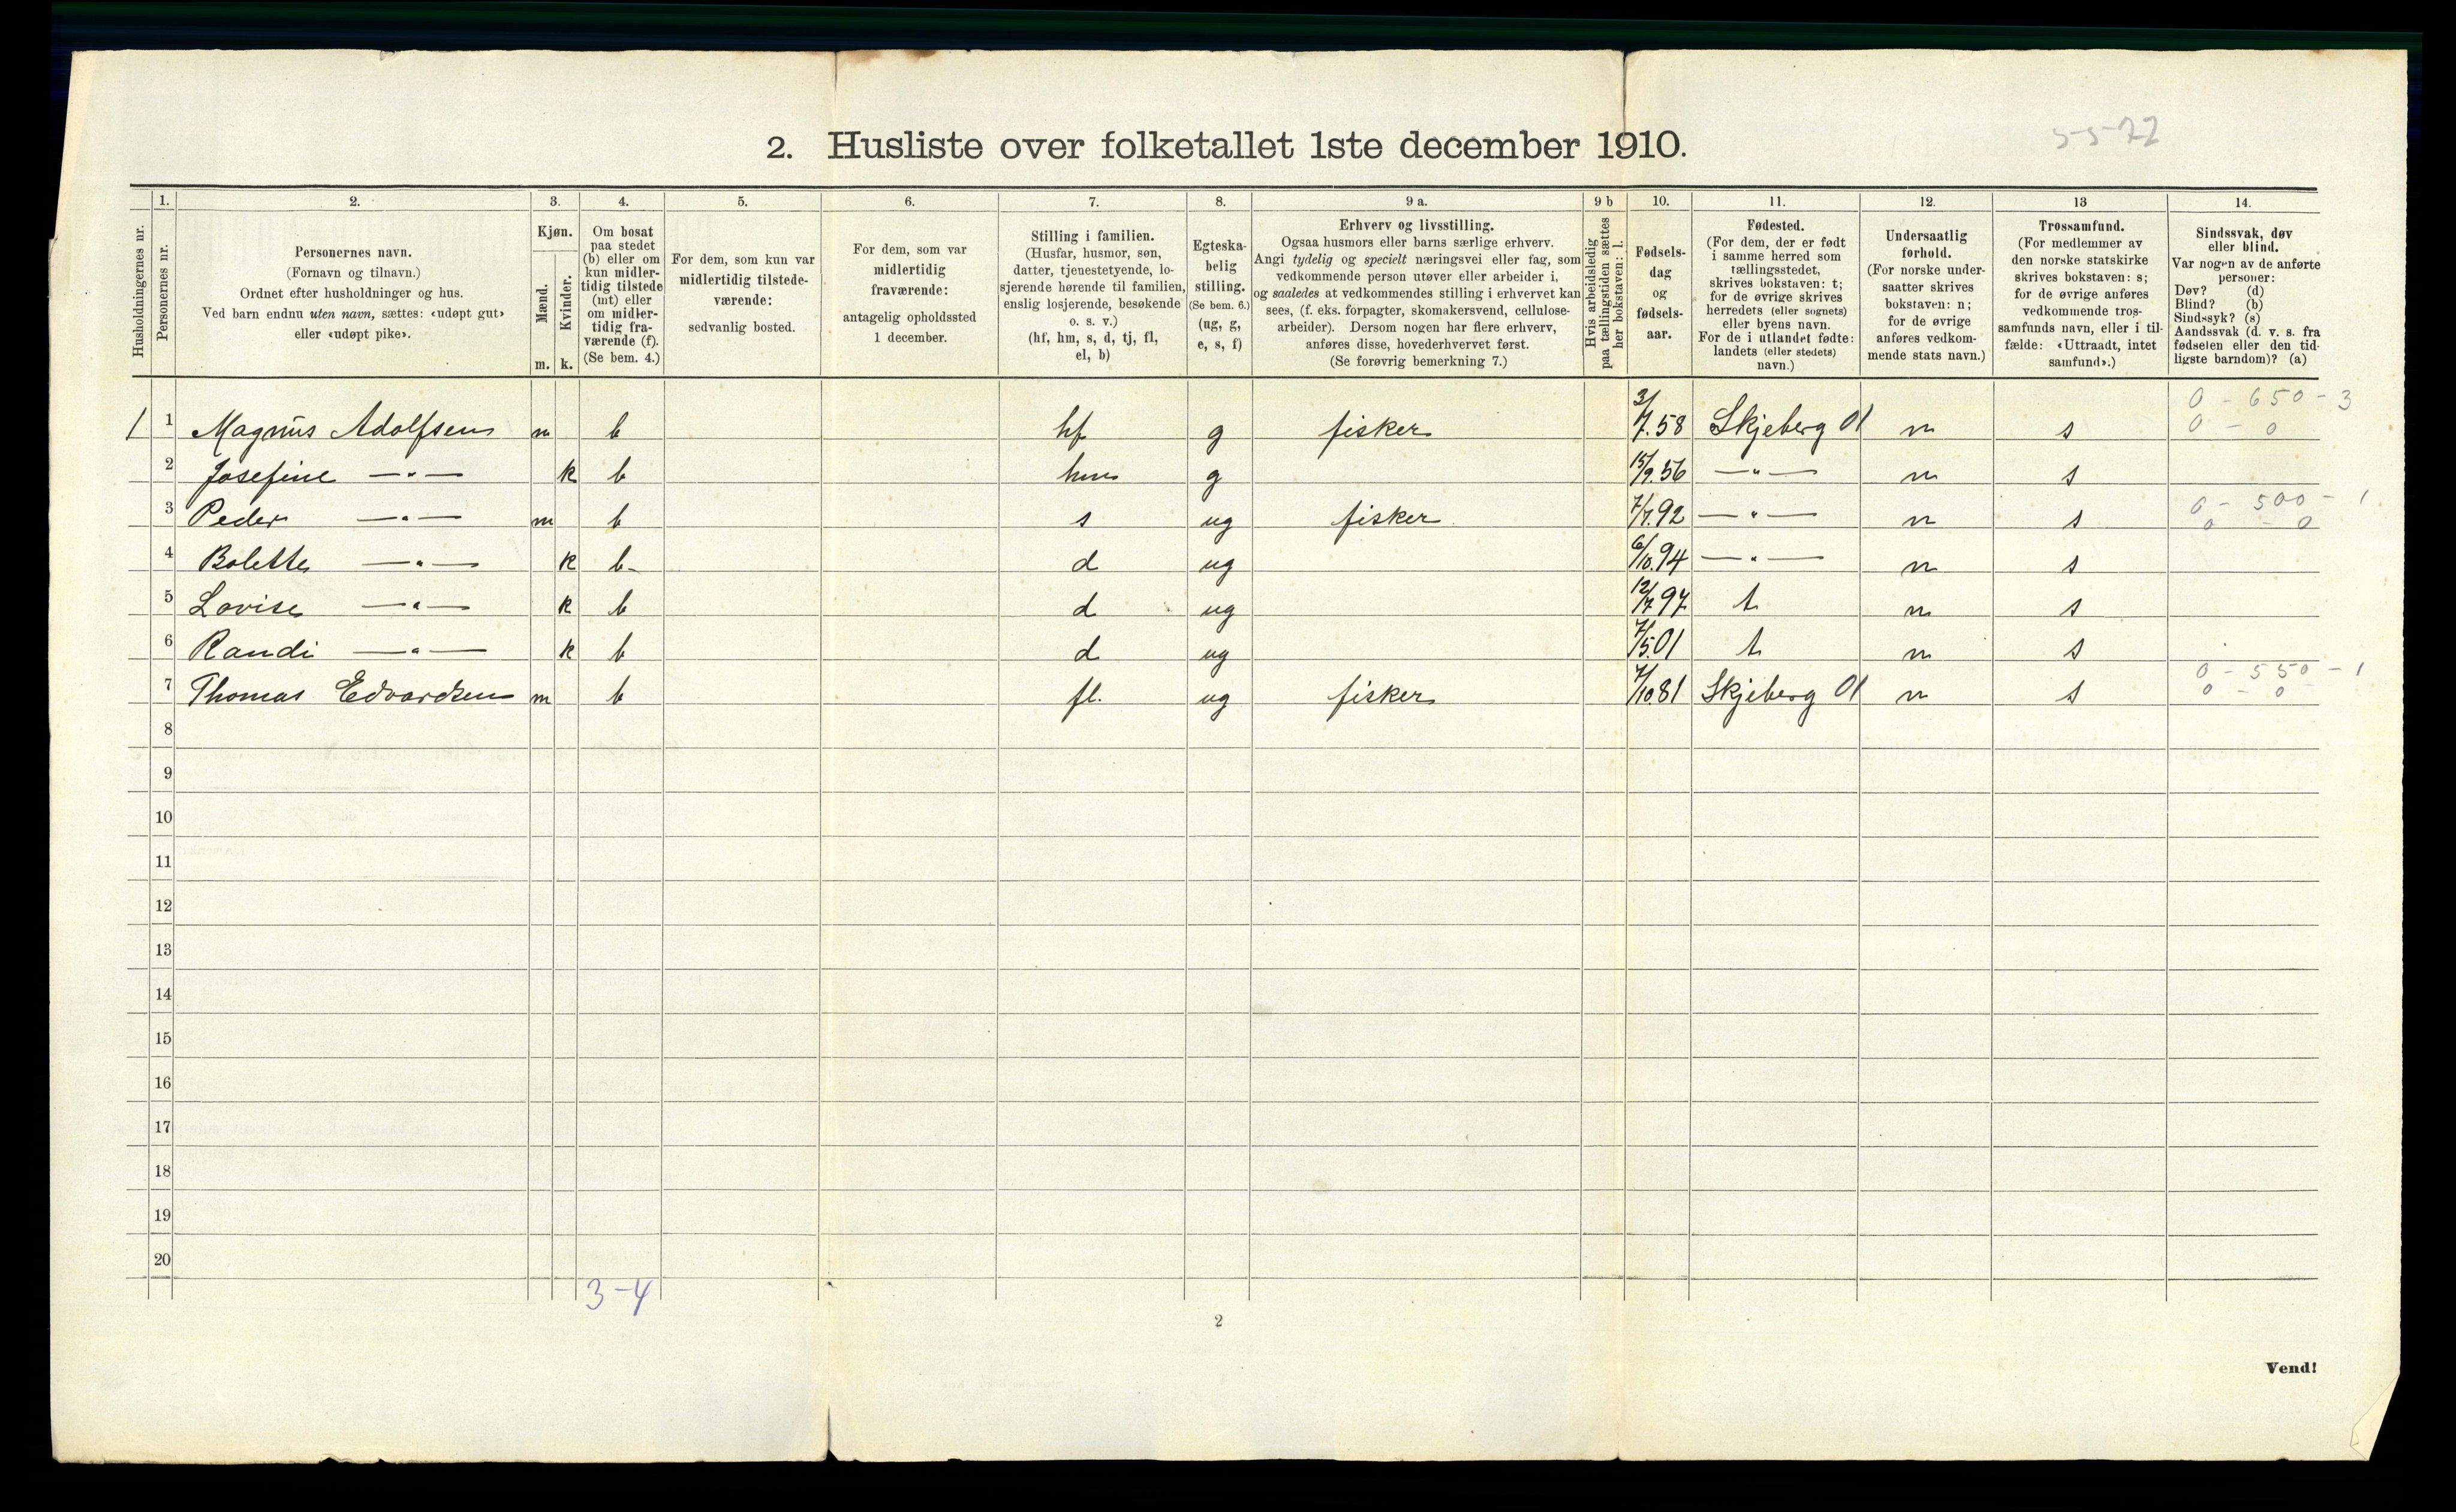 5-5-72
2. Husliste over folketallet 1ste december 1910.
Husholdningernes nr.
1.
Personernes nr.
2.
Personernes navn.
(Fornavn og tilnavn.)
Ordnet efter husholdninger og hus.
Ved barn endnu uten navn, sættes: «udøpt gut»
eller «udøpt pike».
3.
Kjøn.
Mænd.
Kvinder.
m. k.
4.
Om bosat
paa stedet
(b) eller om
kun midler-
tidig tilstede
(mt) eller
om midler-
tidig fra-
værende (f).
(Se bem. 4.)
5.
For dem, som kun var
midlertidig tilstede-
værende:
sedvanlig bosted.
6.
For dem, som var
midlertidig
fraværende:
antagelig opholdssted
1 december.
7.
Stilling i familien.
(Husfar, husmor, søn,
datter, tjenestetyende, lo-
sjerende hørende til familien,
enslig losjerende, besøkende
o. s. v.)
(hf, hm, s, d, tj, fl,
el, b)
8.
Egteska-
belig
stilling.
(Se bem. 6.)
(ug, g,
e, s, f)
9 a.
Erhverv og livsstilling.
Ogsaa husmors eller barns særlige erhverv.
Angi tydelig og specielt næringsvei eller fag, som
vedkommende person utøver eller arbeider i,
og saaledes at vedkommendes stilling i erhvervet kan
sees, (f. eks. forpagter, skomakersvend, cellulose-
arbeider). Dersom nogen har flere erhverv,
anføres disse, hovederhvervet først.
(Se forøvrig bemerkning 7.)
9 b
Hvis arbeidsledig
paa tællingstiden sættes
her bokstaven: l.
10.
Fødsels-
dag
og
fødsels-
aar.
11.
Fødested.
(For dem, der er født
i samme herred som
tællingsstedet,
skrives bokstaven: t;
for de øvrige skrives
herredets (eller sognets)
eller byens navn.
For de i utlandet fødte:
landets (eller stedets)
navn.)
12.
Undersaatlig
forhold.
(For norske under-
saatter skrives
bokstaven: n;
for de øvrige
anføres vedkom-
mende stats navn.)
13
Trossamfund.
(For medlemmer av
den norske statskirke
skrives bokstaven: s;
for de øvrige anføres
vedkommende tros-
samfunds navn, eller i til-
fælde: «Uttraadt, intet
samfund».)
14.
Sindssvak, døv
eller blind.
Var nogen av de anførte
personer:
Døv? (d)
Blind? (b)
Sindssyk? (s)
Aandssvak (d. v. s. fra
fødselen eller den tid-
ligste barndom)? (a)
1 1 Magnus Adolfsen m b hf g fisker 3/7.58 Skjeberg 01 n s 0 - 650 - 3
0 - 0
2 Josefine —"— k b hm g 15/9.56 —"— n s
3 Peder —"— m b s ug fisker 7/7.92 —"— n s 0 - 500 - 1
0 - 0
4 Bolette —"— k b d ug 6/10.94 —"— n s
5 Lovise —"— k b d ug 12/7.97 t n s
6 Randi —"— k b d ug 7/5.01 t n s
7 Thomas Edvardsen m b fl. ug fisker 7/10.81 Skjeberg 01 n s 0 - 550 - 1
0 - 0
8
9
10
11
12
13
14
15
16
17
18
19
20
3-4
2
Vend!